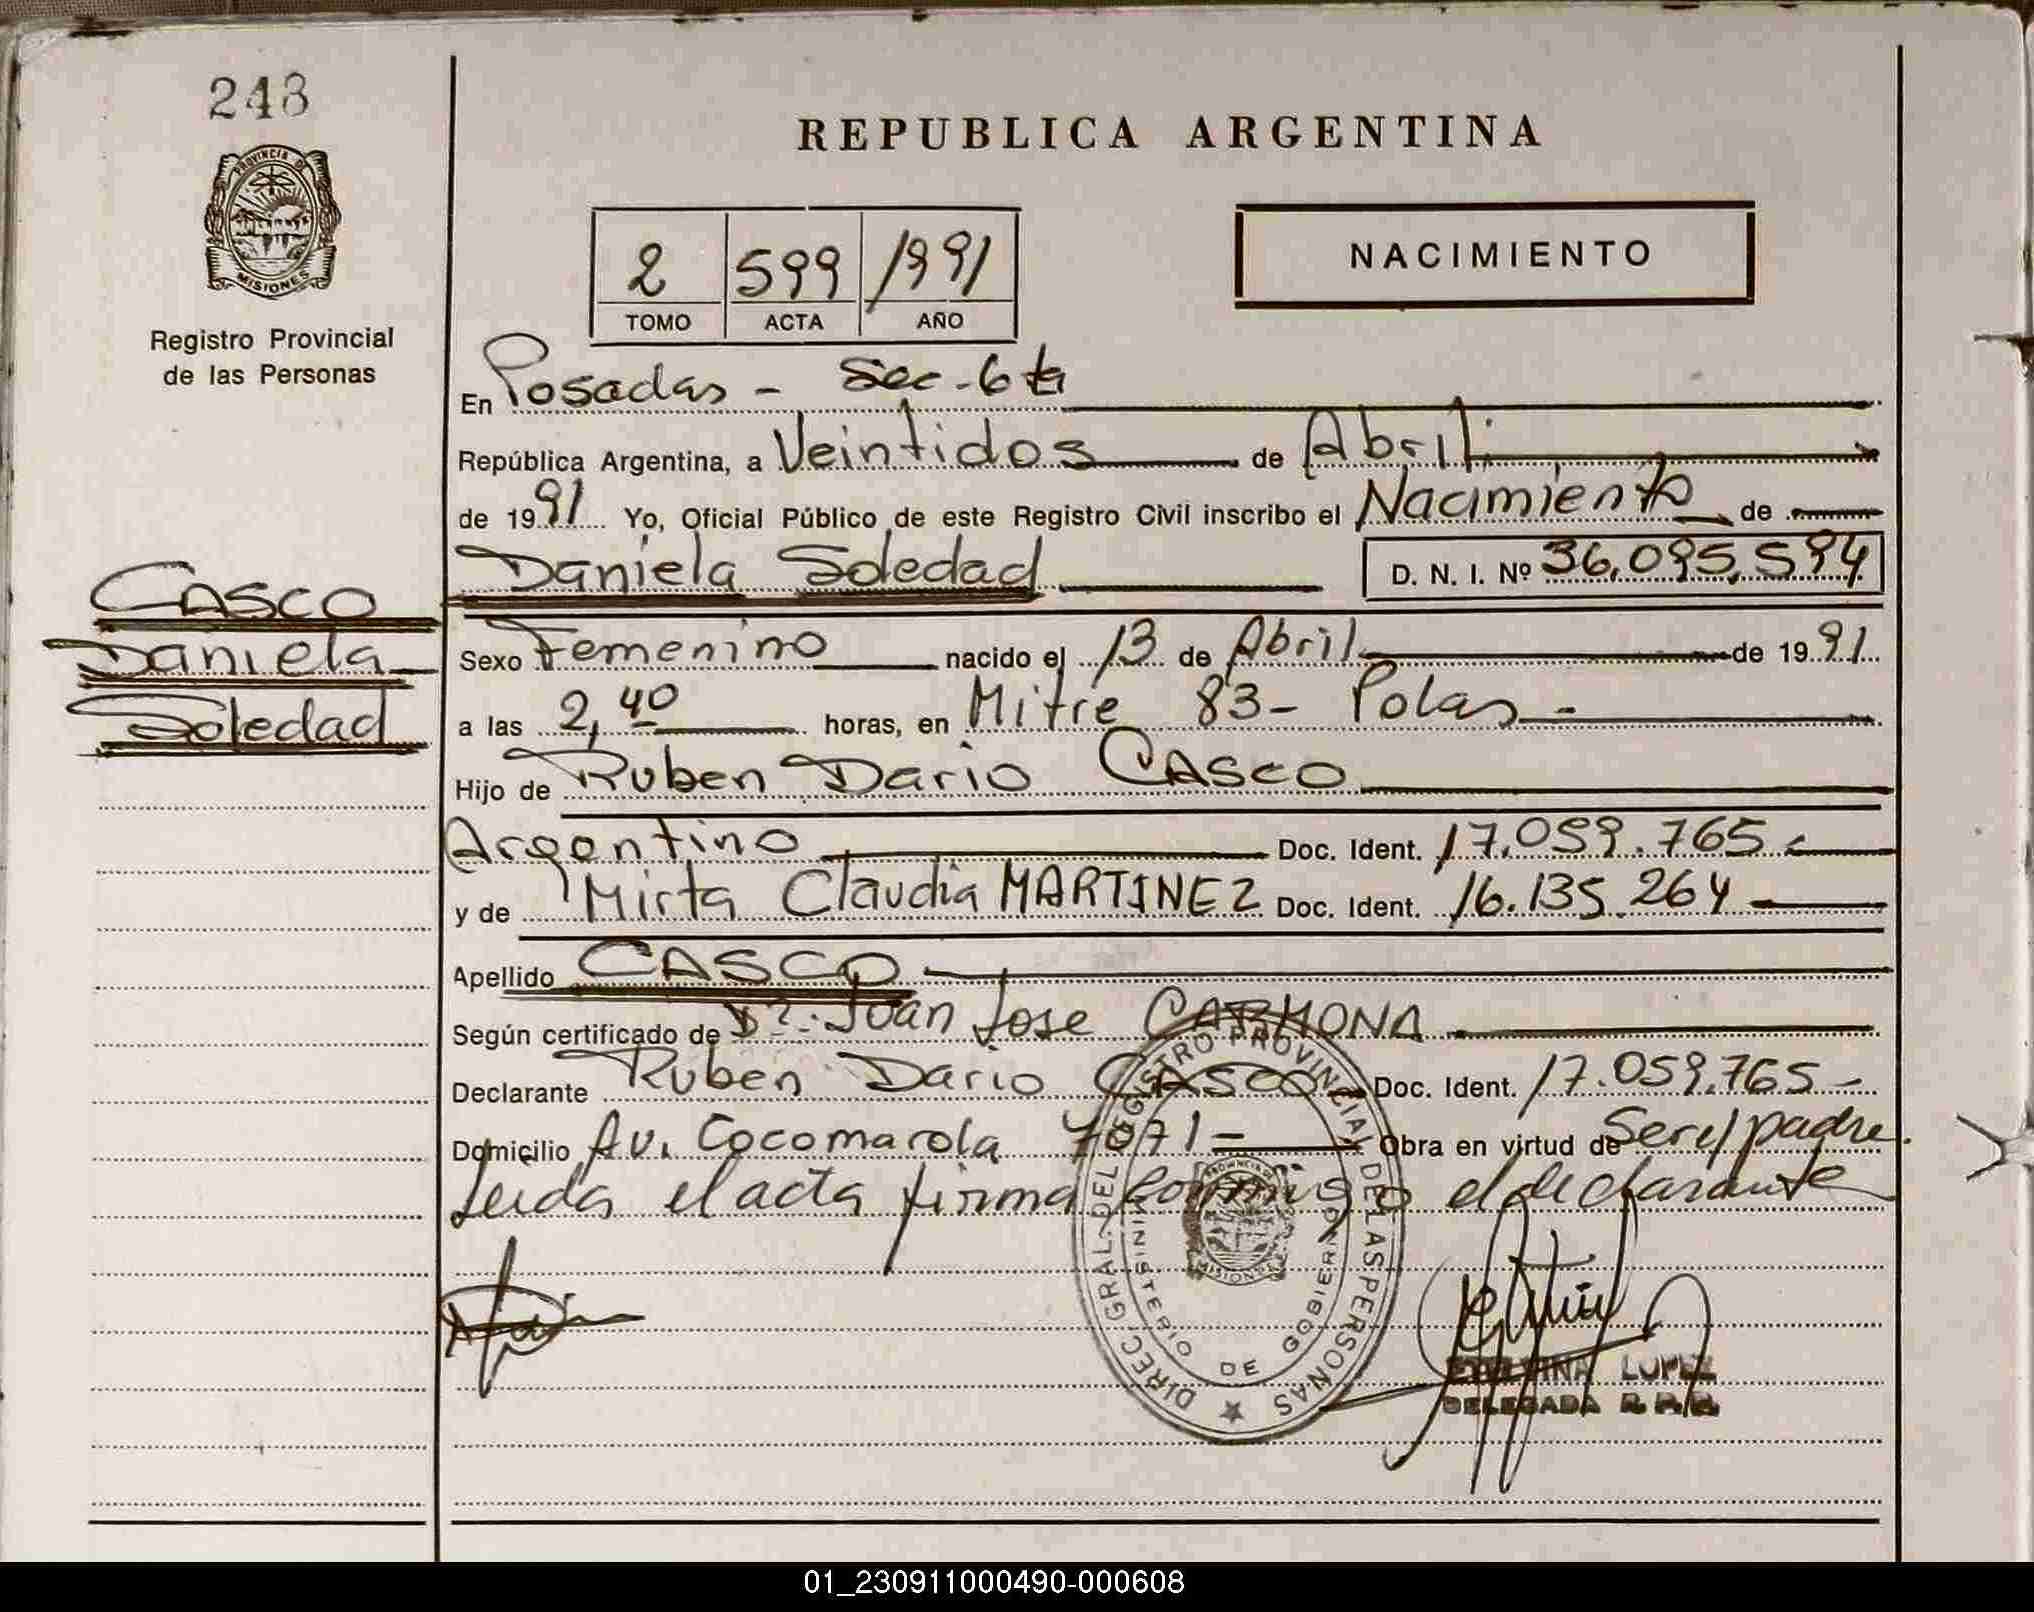 248
PROVINCIA DE
MISIONES
Registro Provincial
de las Personas
CASCO
Daniela
Soledad
REPUBLICA ARGENTINA
2 599 1991
TOMO ACTA AÑO
NACIMIENTO
En Posadas - Sec. 6ta
República Argentina, a Veintidos de Abril
de 1991 Yo, Oficial Público de este Registro Civil inscribo el Nacimiento de
Daniela Soledad D. N. I. Nº 36.095.594
Sexo Femenino nacido el 13 de Abril de 1991
a las 2,40 horas, en Mitre 83 - Pdas -
Hijo de Ruben Dario CASCO
Argentino Doc. Ident. 17.059.765
y de Mirta Claudia MARTINEZ Doc. Ident. 16.135.264
Apellido CASCO
Según certificado de Dr. Juan Jose CARMONA
Declarante Ruben Dario CASCO Doc. Ident. 17.059.765 -
Domicilio Av. Cocomarola Obra en virtud de Ser el padre.
Leida el acta firma conmigo el declarante
DIREC. GRAL. DEL REGISTRO PROVINCIAL DE LAS PERSONAS
MINISTERIO DE GOBIERNO
PROVINCIA DE
MISIONES
LOPEZ
DELEGADA R.P.P.
01_230911000490-000608